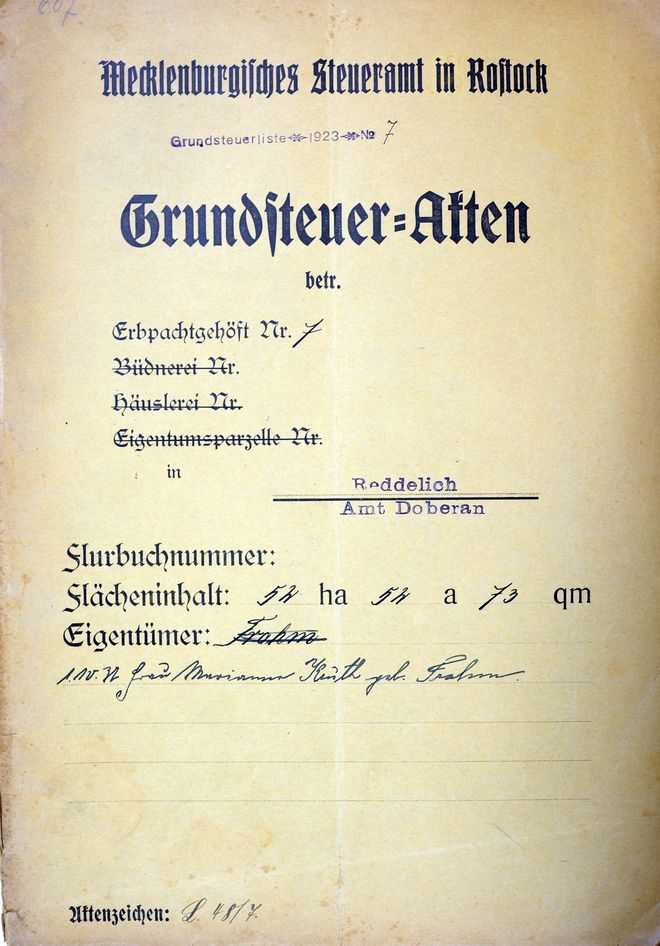 607
Mecklenburgisches Steueramt in Rostock
Grundsteuerliste 1923 No 7
Grundsteuer=Akten
betr.
Erbpachtgehöft Nr. 7
Büdnerei Nr.
Häuslerei Nr.
Eigentumsparzelle Nr.
in
Reddelich
Amt Doberan
Flurbuchnummer:
Flächeninhalt: 52 ha 52 a 73 qm
Eigentümer: Frahm
Frau Marianne geb. Frahm.
Aktenzeichen: L. 48/7.